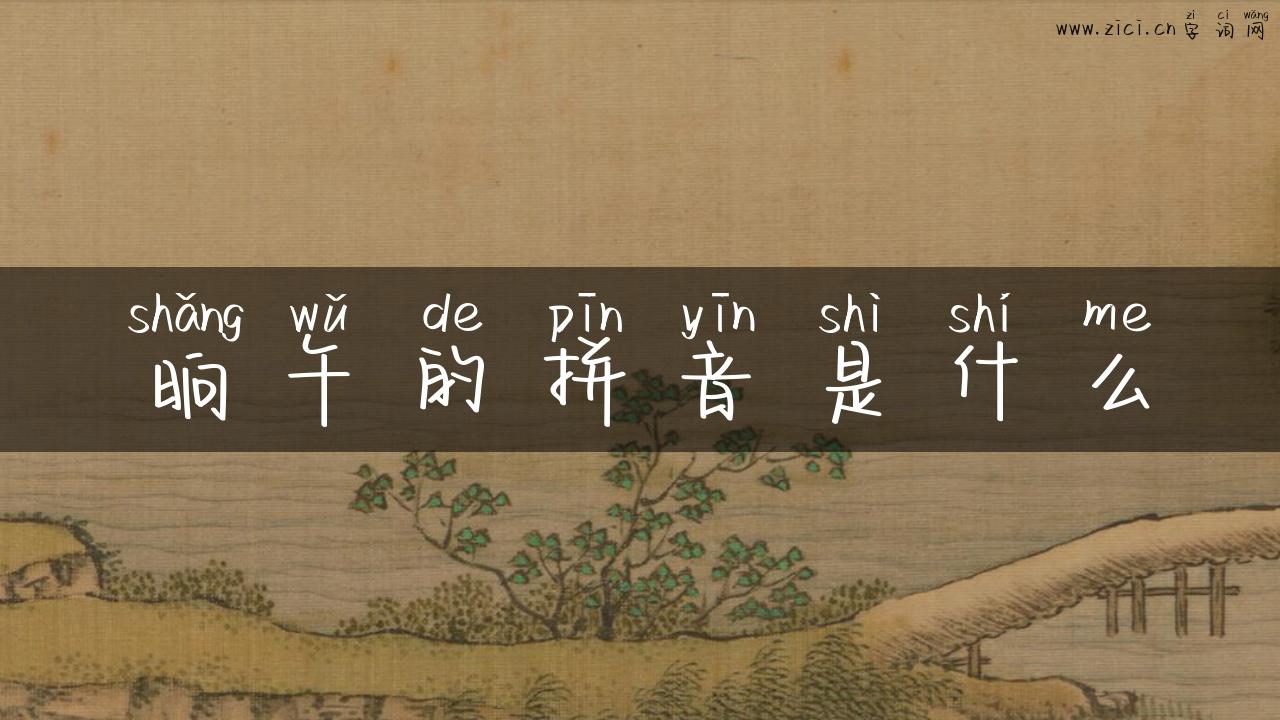 zì cí wǎng
www.zici.cn 字词网
shǎng wǔ de pīn yīn shì shí me
晌午的拼音是什么